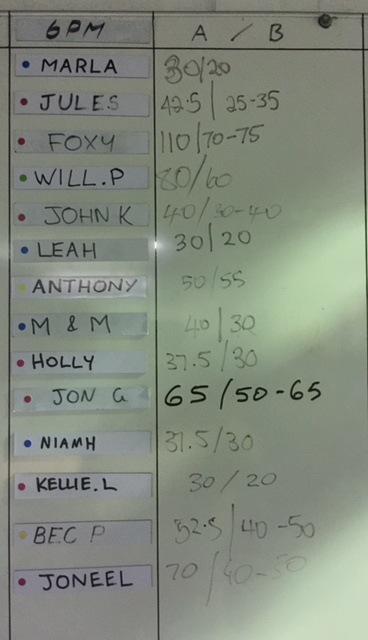 6PM A / B
MARLA 30/20
JULES 42.5 | 25-35
FOXY 110/70-75
WILL.P 80/60
JOHN K 40/30-40
LEAH 30|20
ANTHONY 50/55
M & M 40|30
HOLLY 37.5/30
JON G 65/50-65
NIAMH 37.5/30
KELLIE.L 30/20
BEC P 52.5/40-50
JONEEL 70/40-50